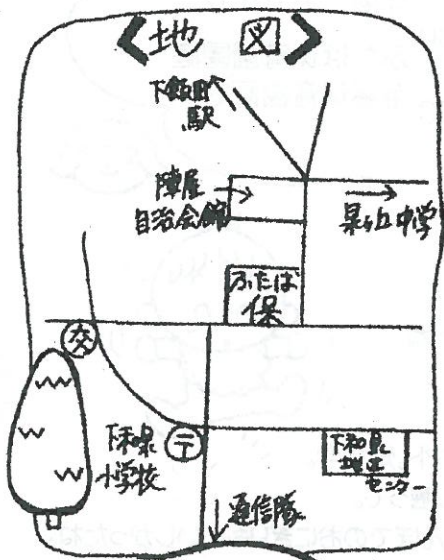 <地図>
下飯田
駅
陣屋
自治会館
泉ヶ丘中学
ふたば
保
交
〒
下和泉
小学校
下和泉
地区
センター
通信隊